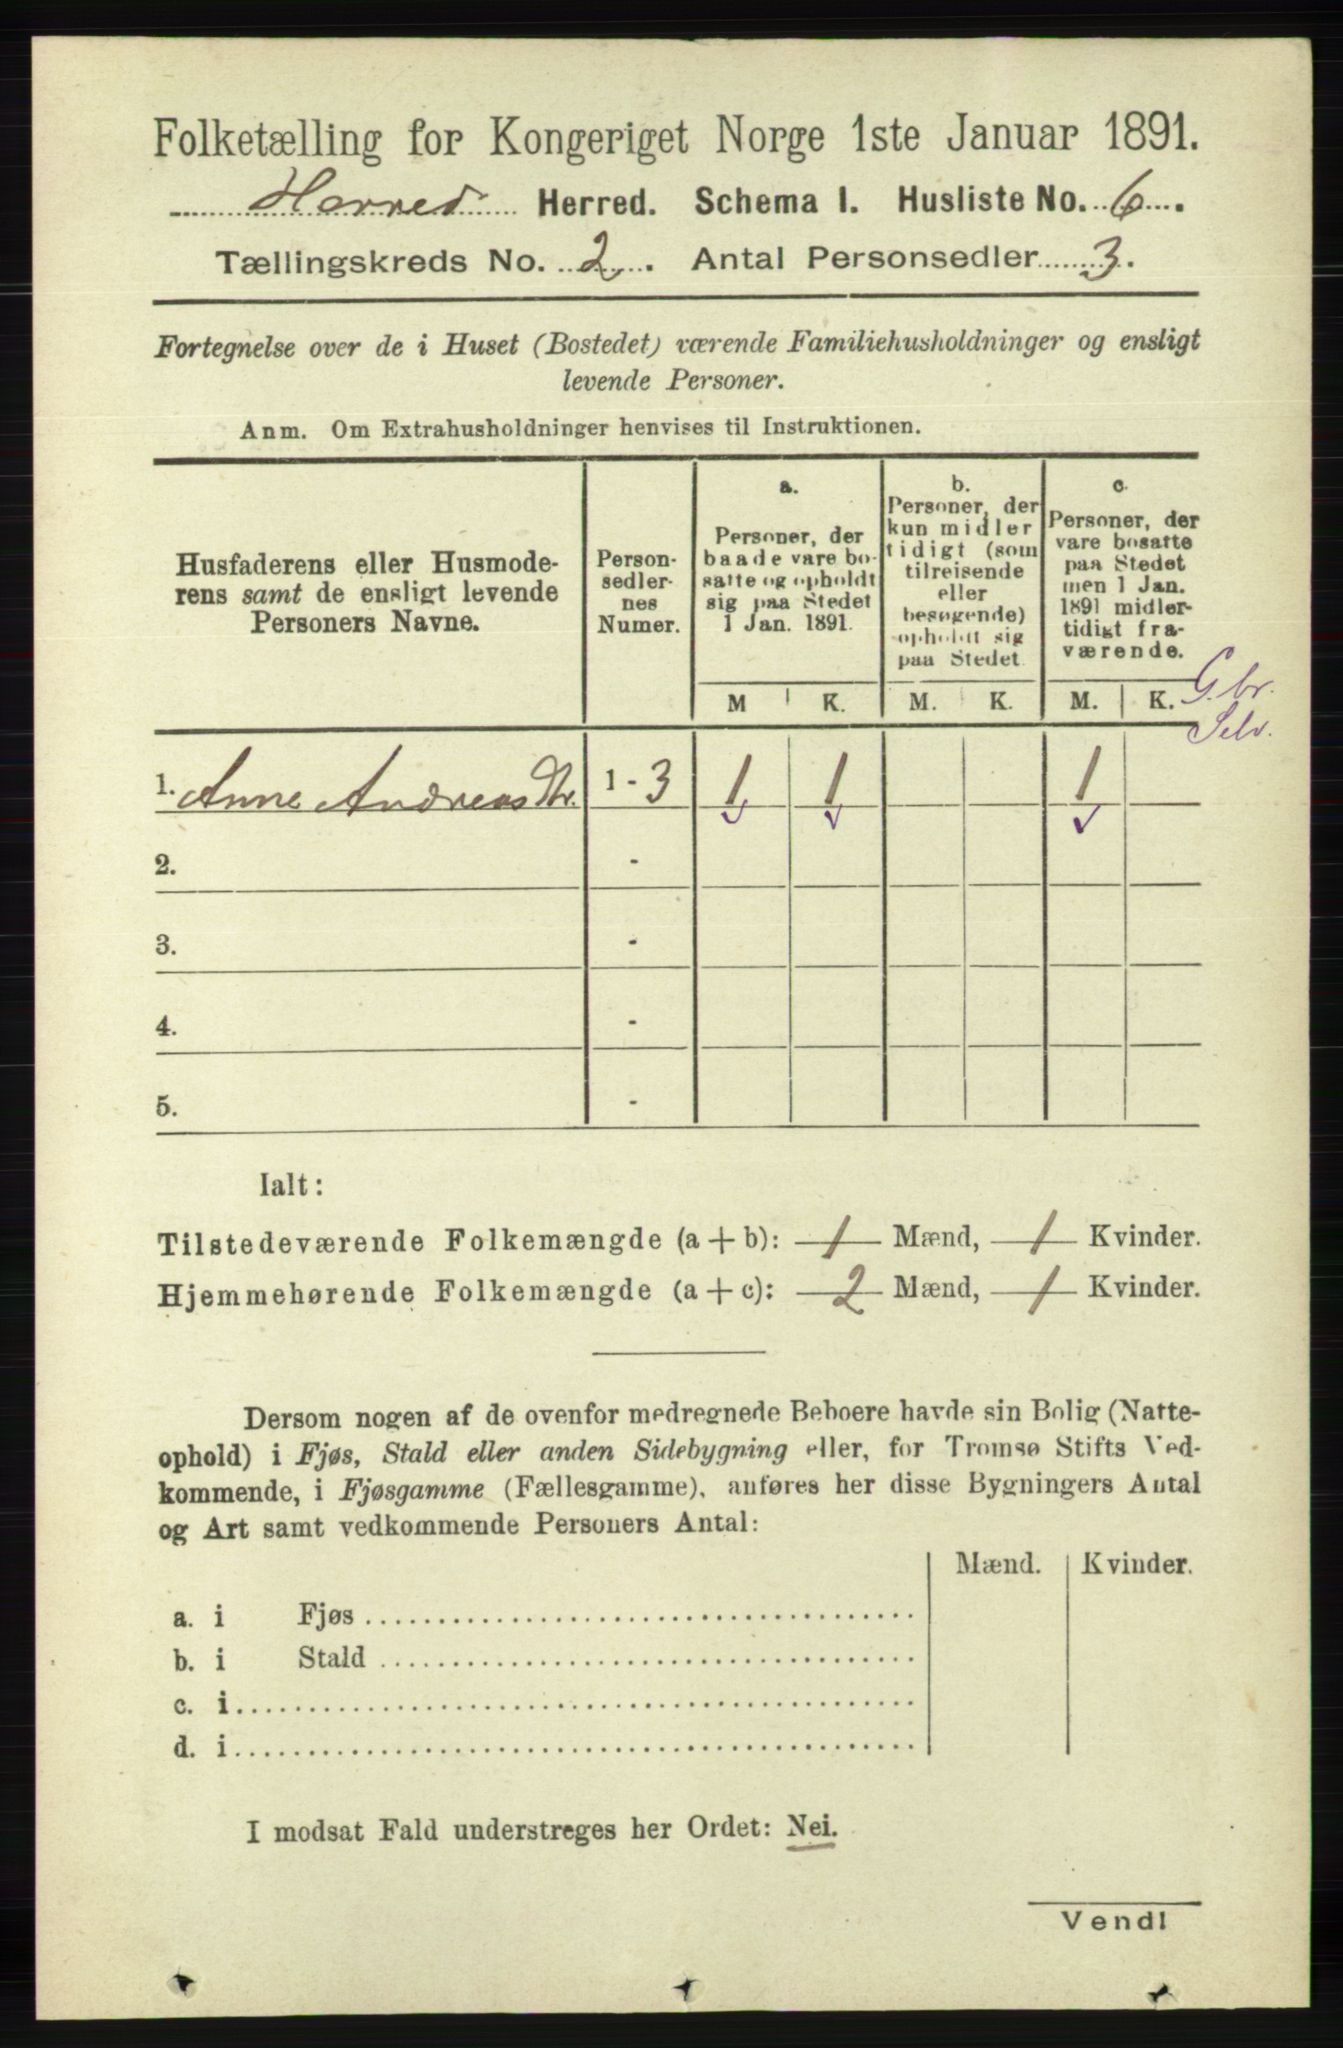 Folketælling for Kongeriget Norge 1ste Januar 1891.
Herred. Schema I. Husliste No. 6.
Tællingskreds No. 2. Antal Personsedler 3.
Fortegnelse over de i Huset (Bostedet) værende Familiehusholdninger og ensligt
levende Personer.
Anm. Om Extrahusholdninger henvises til Instruktionen.
Husfaderens eller Husmode-
rens samt de ensligt levende
Personers Navne.
Person-
sedler-
nes
Numer.
a.
Personer, der
baade vare bo-
satte og opholdt
sig paa Stedet
1 Jan. 1891.
b.
Personer, der
kun midler
tidigt (som
tilreisende
eller
besøgende)
opholdt sig
paa Stedet
c.
Personer, der
vare bosatte
paa Stedet
men 1 Jan.
1891 midler-
tidigt fra-
værende.
M K. M. K. M. K.
G.br.
Selv.
1. Anne Andreasdtr. 1 - 3 1 1 1
2. -
3. -
4. -
5. -
Ialt:
Tilstedeværende Folkemængde (a + b): 1 Mænd, 1 Kvinder.
Hjemmehørende Folkemængde (a + c): 2 Mænd, 1 Kvinder.
Dersom nogen af de ovenfor medregnede Beboere havde sin Bolig (Natte-
ophold) i Fjøs, Stald eller anden Sidebygning eller, for Tromsø Stifts Ved-
kommende, i Fjøsgamme (Fællesgamme), anføres her disse Bygningers Antal
og Art samt vedkommende Personers Antal:
Mænd. Kvinder.
a. i Fjøs
b. i Stald
c. i
d. i
I modsat Fald understreges her Ordet: Nei.
Vendl